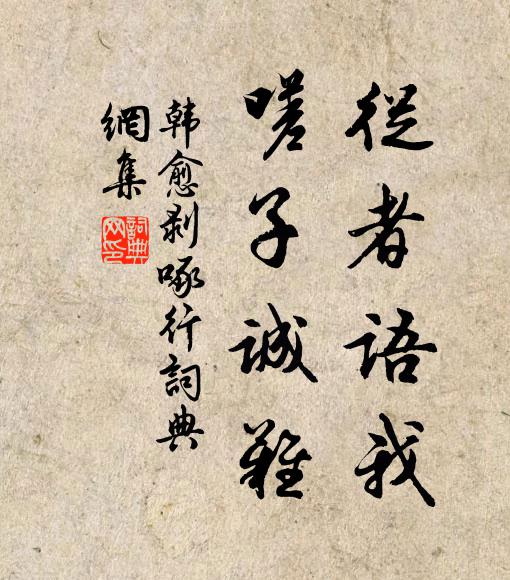 從者語我
嗟子誠難
韓愈剥啄行詞典
網集
詞典
网印